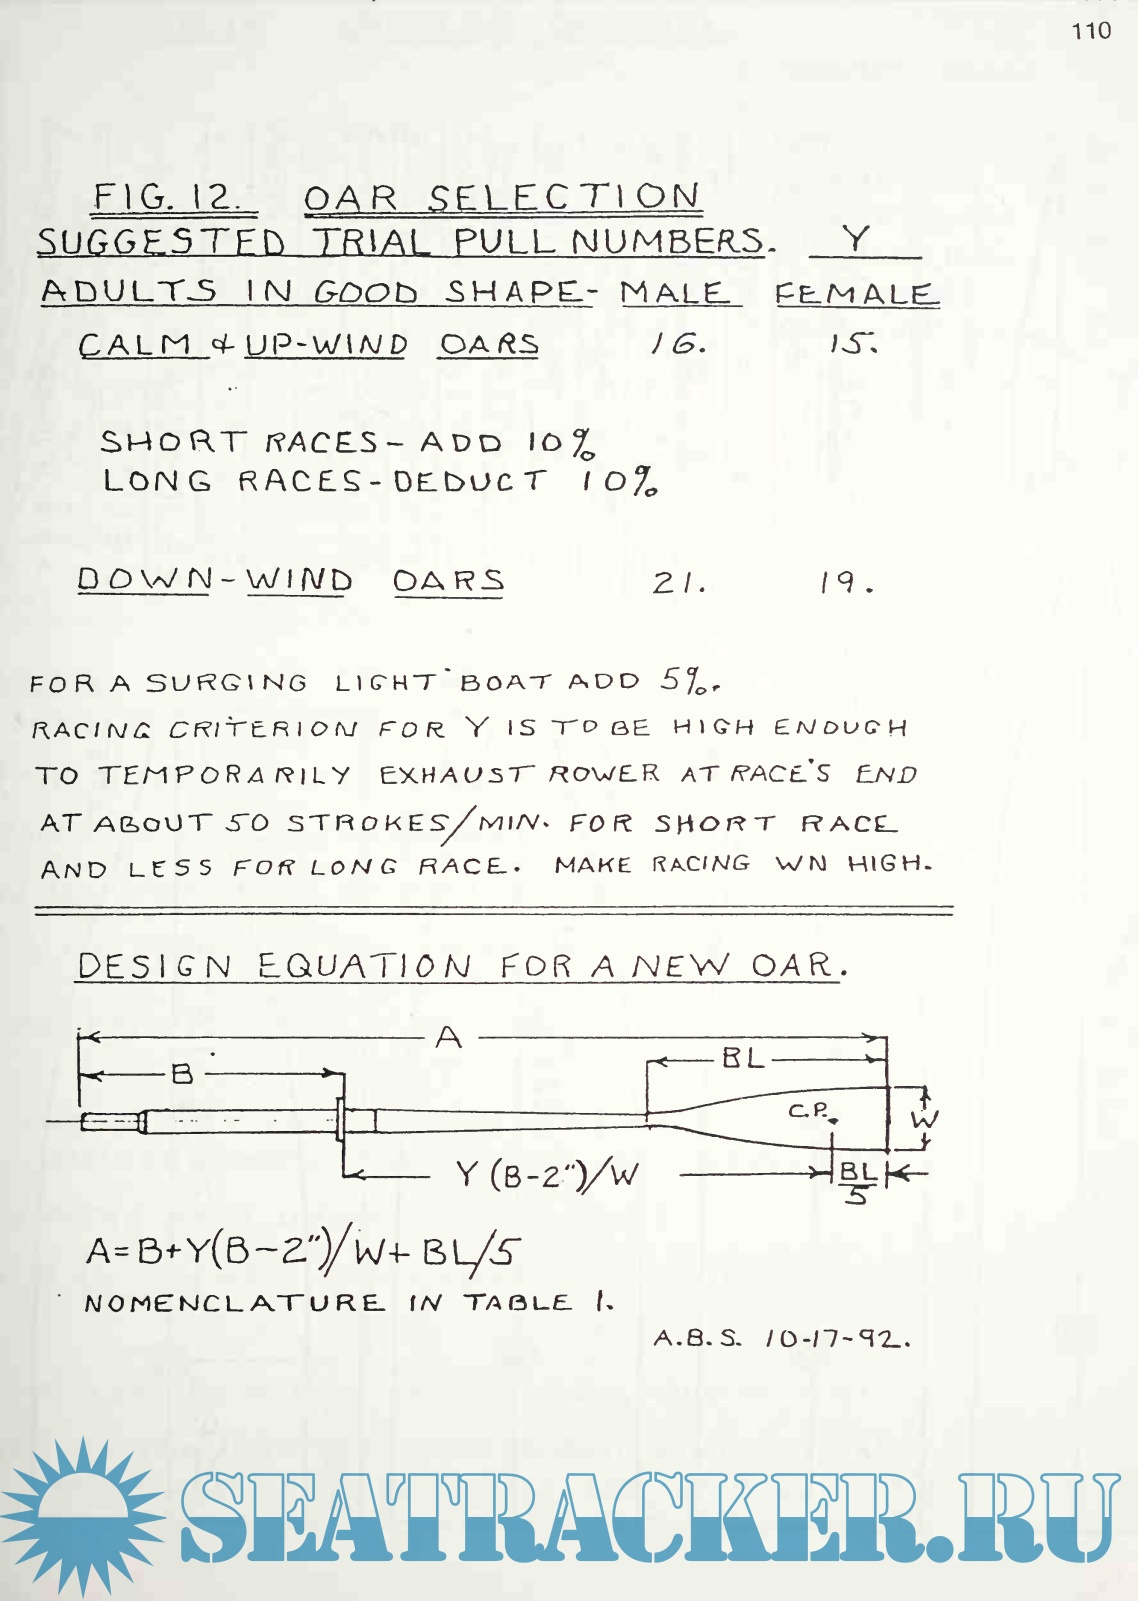 110
FIG. 12. OAR SELECTION
SUGGESTED TRIAL PULL NUMBERS. Y
ADULTS IN GOOD SHAPE- MALE FEMALE
CALM & UP-WIND OARS 16. 15.
SHORT RACES- ADD 10%
LONG RACES- DEDUCT 10%
DOWN-WIND OARS 21. 19.
FOR A SURGING LIGHT BOAT ADD 5%.
RACING CRITERION FOR Y IS TO BE HIGH ENOUGH
TO TEMPORARILY EXHAUST ROWER AT RACE'S END
AT ABOUT 50 STROKES/MIN. FOR SHORT RACE
AND LESS FOR LONG RACE. MAKE RACING WN HIGH.
DESIGN EQUATION FOR A NEW OAR.
A
B BL
C.P. W
Y (B-2")/W BL/5
A=B+Y(B-2")/W+ BL/5
NOMENCLATURE IN TABLE 1.
A.B.S. 10-17-92.
SEATRACKER.RU